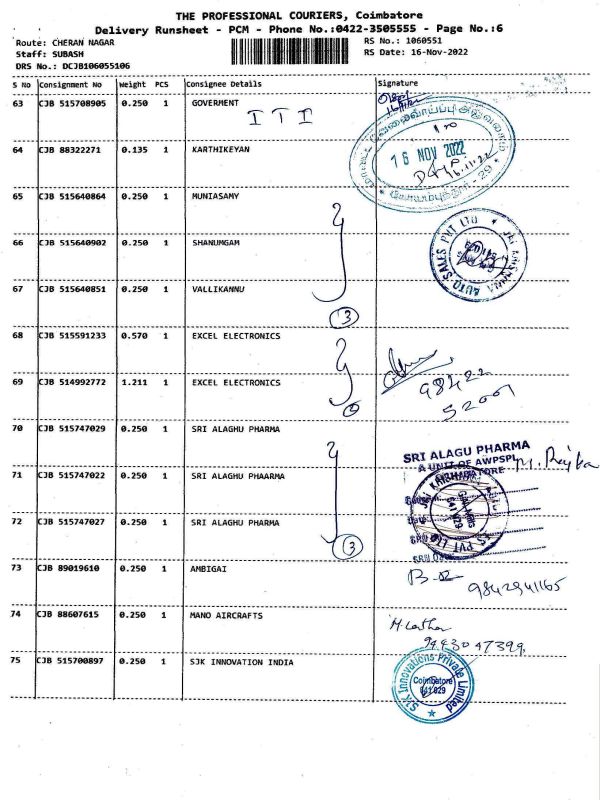 THE PROFESSIONAL COURIERS, Coimbatore
Delivery Runsheet - PCM - Phone No.:0422-3505555 - Page No.:6
Route: CHERAN NAGAR RS No.: 1060551
Staff: SUBASH RS Date: 16-Nov-2022
DRS No.: DCJB106055106
S No Consignment No Weight PCS Consignee Details Signature
63 CJB 515708905 0.250 1 GOVERMENT
ITI
16 NOV 2022
64 CJB 88322271 0.135 1 KARTHIKEYAN
65 CJB 515640864 0.250 1 MUNIASAMY
66 CJB 515640902 0.250 1 SHANUMGAM
AUTO SALES PVT LTD * JAI KRISHNAA
67 CJB 515640851 0.250 1 VALLIKANNU
3
68 CJB 515591233 0.570 1 EXCEL ELECTRONICS
69 CJB 514992772 1.211 1 EXCEL ELECTRONICS
98422
52001
70 CJB 515747029 0.250 1 SRI ALAGHU PHARMA
SRI ALAGU PHARMA
A UNIT OF AWPSPL
71 CJB 515747022 0.250 1 SRI ALAGHU PHAARMA
72 CJB 515747027 0.250 1 SRI ALAGHU PHARMA
3
73 CJB 89019610 0.250 1 AMBIGAI
9842941165
74 CJB 88607615 0.250 1 MANO AIRCRAFTS
9443047399
75 CJB 515700897 0.250 1 SJK INNOVATION INDIA
SJK Innovations Private Limited
Coimbatore
641 029